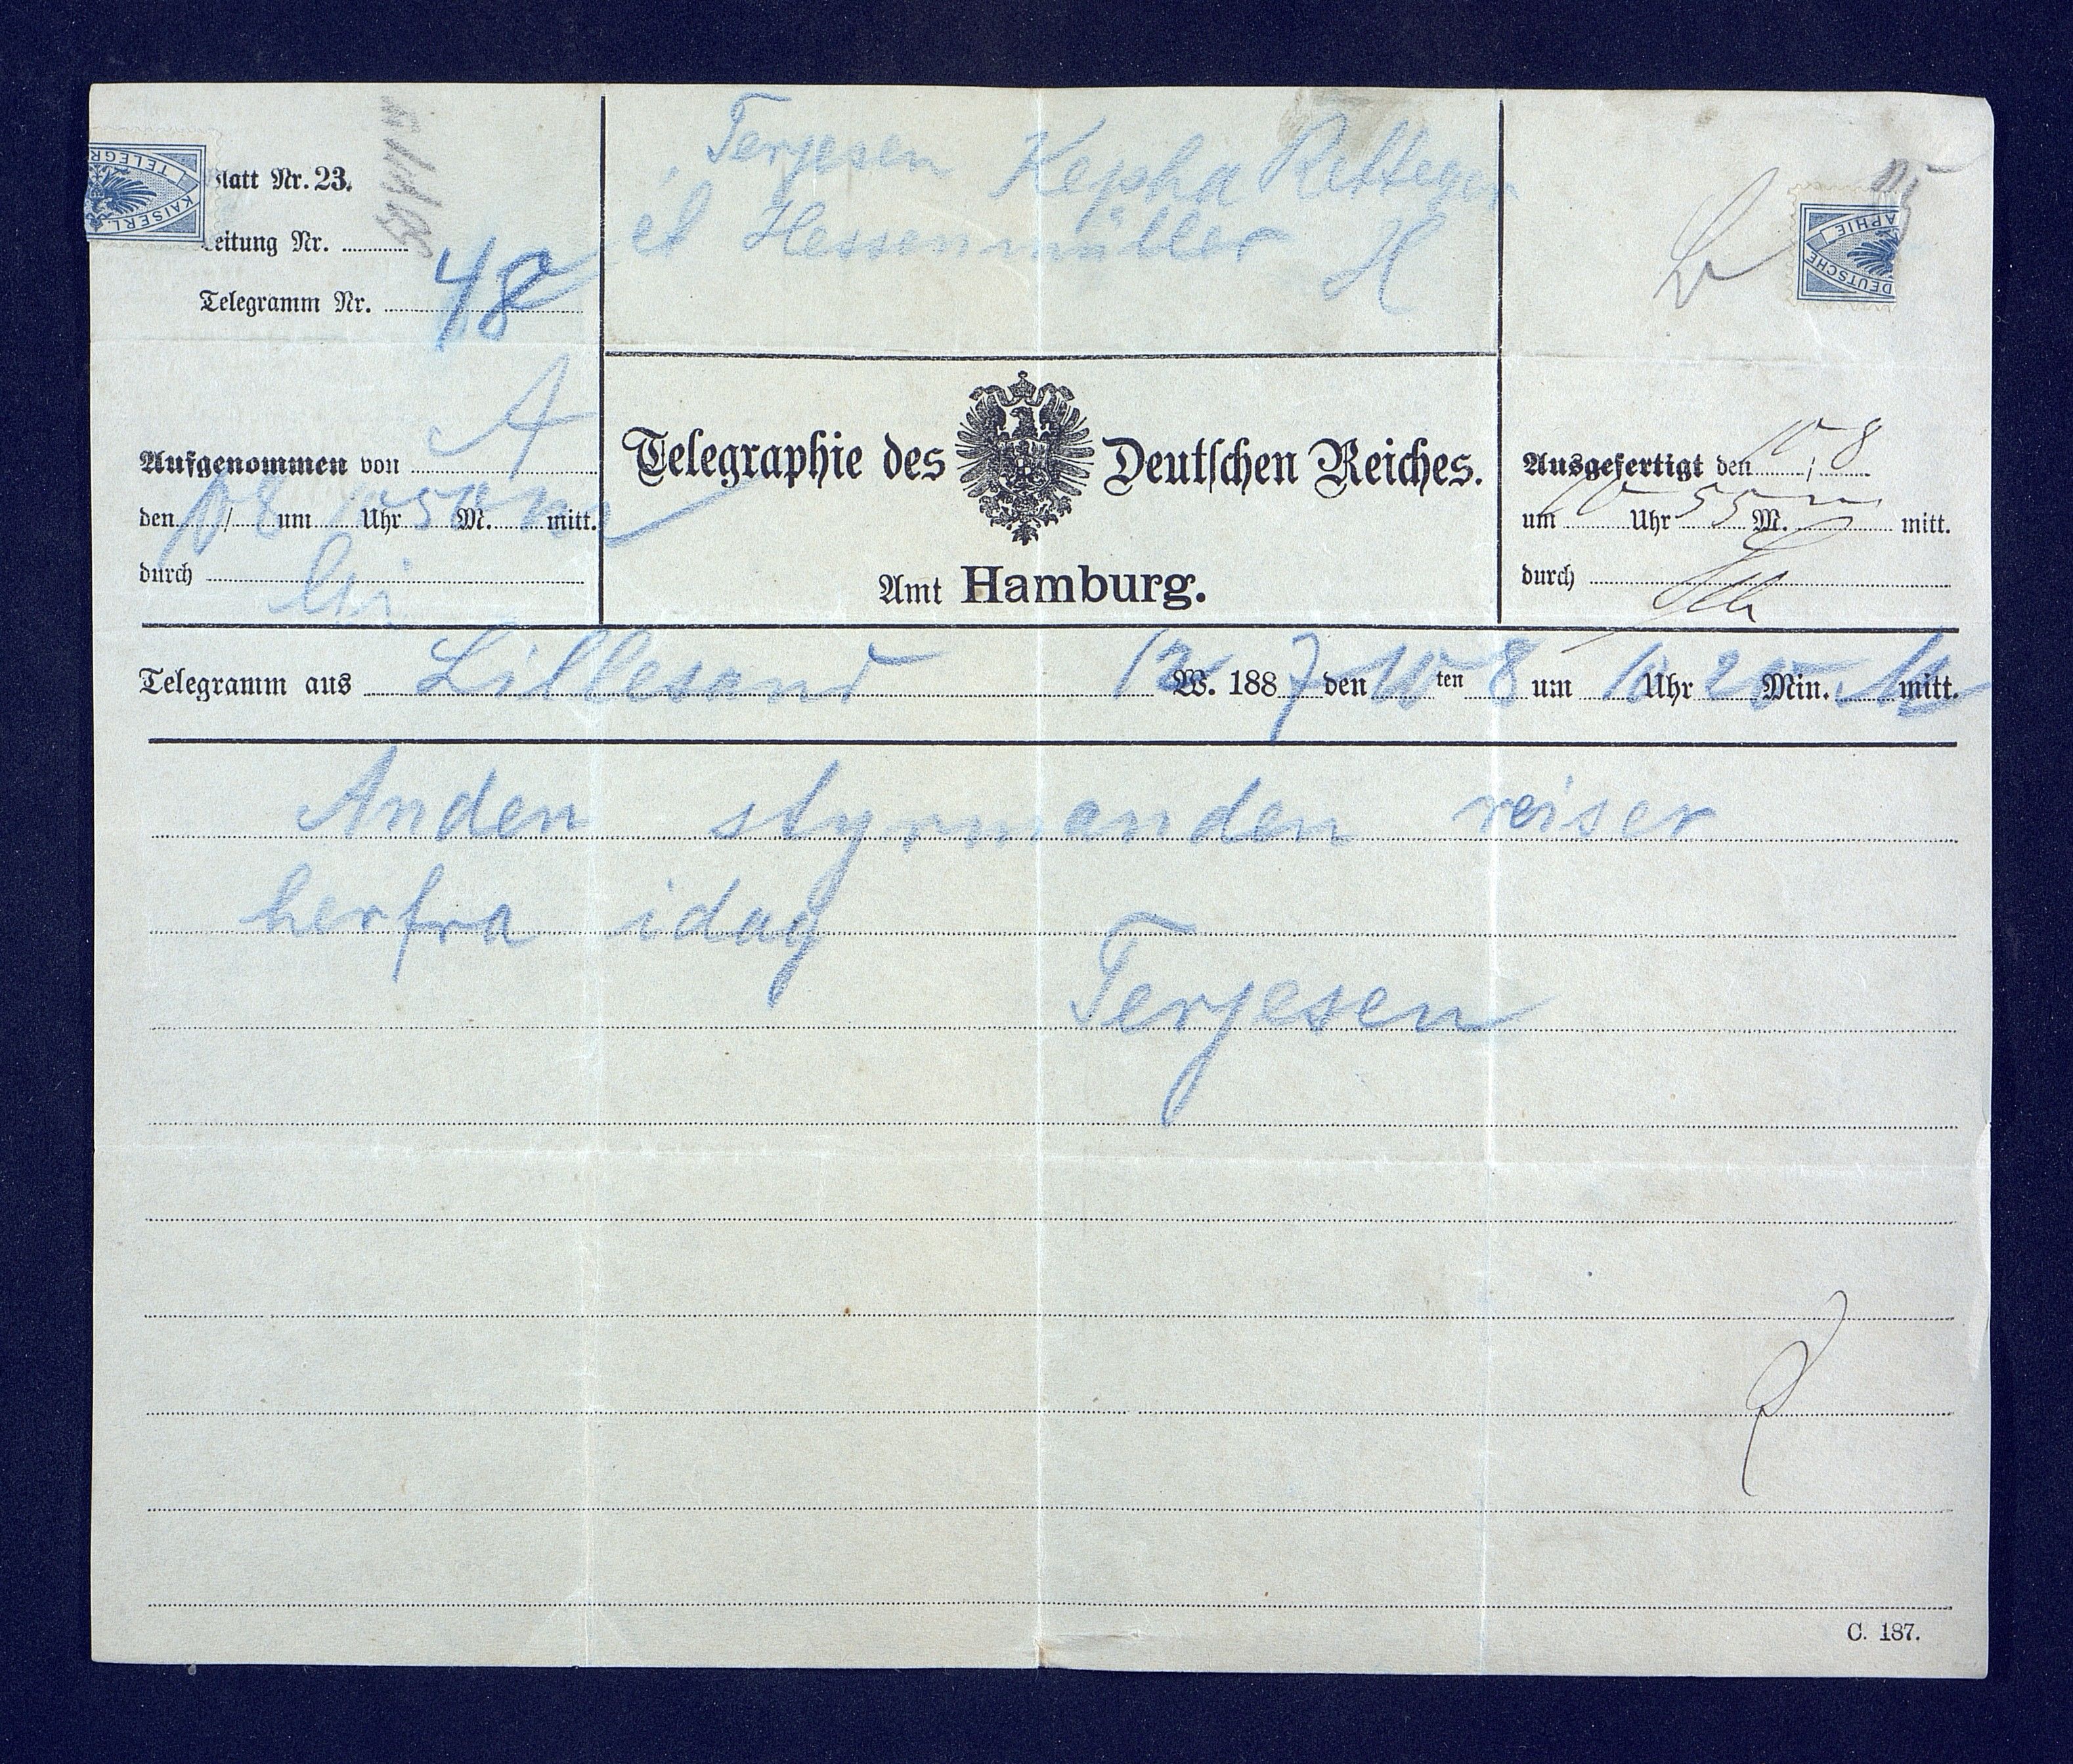 latt Nr. 23.
eitung Nr.
Telegramm Nr. 48
Terjesen Kepha Retteger
et Hessenmüller H
KAISERL. TELEGR
DEUTSCHE APHIE
Aufgenommen von A
den / um Uhr M. mitt.
durch
Telegraphie des Deutschen Reiches.
Amt Hamburg.
Ausgefertigt den 10 / 8
um 10 Uhr 55 M. mitt.
durch
Telegramm aus Lillesand 12 W. 1887 den 10 ten 8 um 10 Uhr 20 Min. mitt.
Anden styrmanden reiser
herfra idag
Terjesen
C. 187.